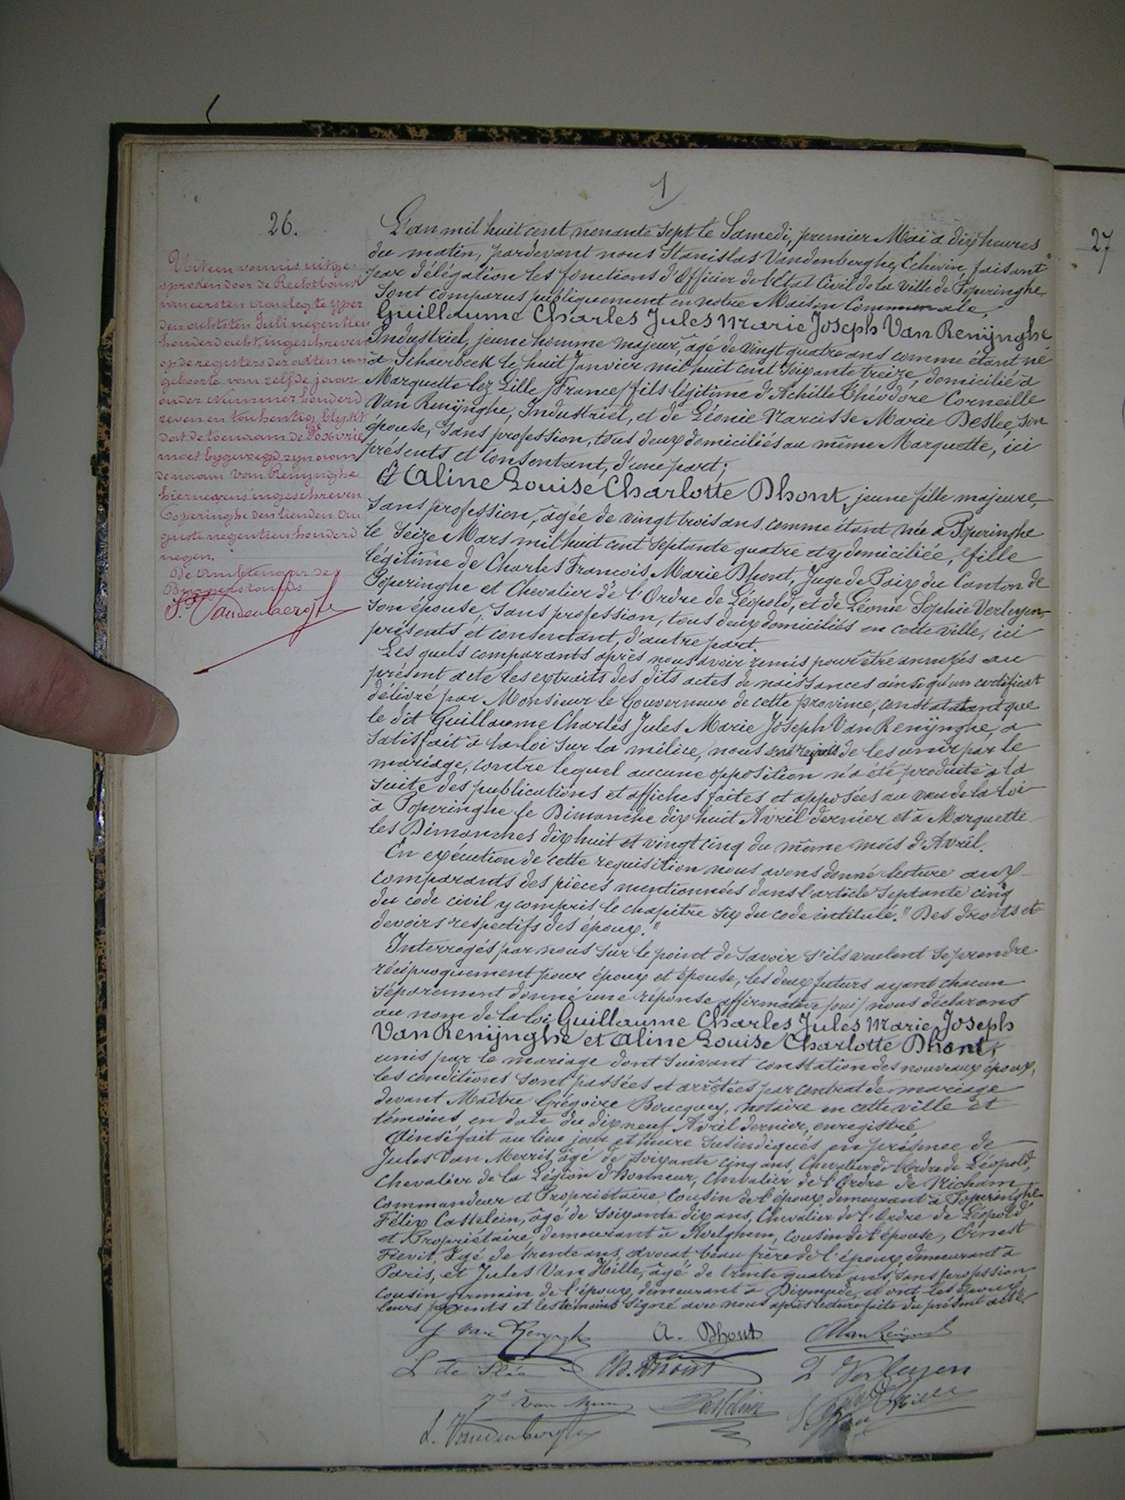 1
26.
27
Uit een vonnis uitge-
sproken door de Rechtbank
van eersten aanleg te Yper
den achtsten Juli negentien
honderd acht, ingeschreven
op de registers der akten van
geboorte van zelfde jaar
onder nummer honderd
zeven en tachentig, blykt
dat de toenaam de
moet bygevoegd zyn aan
de naam Van Renynghe
hiernevens ingeschreven
Poperinghe den tienden Au-
guste negentien honderd
negen.
De Ambtenaar des
Burgerstands
St. Vandenberghe
L'an mil huit cent nonante sept le Samedi, premier Mai à dix heures
du matin, pardevant nous Stanislas Vandenberghe, Echevin, faisant
par délégation les fonctions d'Officier de l'Etat Civil de la ville de Poperinghe
sont comparus publiquement en notre Maison Communale,
Guillaume Charles Jules Marie Joseph Van Renynghe
Industriel, jeune homme majeur, âgé de vingt quatre ans comme étant né
à Schaerbeek le huit Janvier mil huit cent soixante treize, domicilié à
Marquette lez Lille (France) fils légitime d'Achille Théodore Corneille
Van Renynghe, Industriel, et de Léonie Narcisse Marie Deslée, son
épouse, sans profession, tous deux domiciliés au même Marquette, ici
présents et consentant, d'une part;
Et Aline Louise Charlotte Dhont, jeune fille majeure,
sans profession, âgée de vingt trois ans comme étant née à Poperinghe
le seize Mars mil huit cent septante quatre et y domiciliée, fille
légitime de Charles François Marie Dhont, Juge de Paix du Canton de
Poperinghe et Chevalier de l'Ordre de Léopold, et de Léonie Sophie Verluyen,
son épouse, sans profession, tous deux domiciliés en cette ville, ici
présents et consentant, d'autre part.
Les quels comparants après nous avoir remis pour être annexés au
présent acte les extraits des dits actes de naissances ainsi qu'un certificat
délivré par Monsieur le Gouverneur de cette province, constatant que
le dit Guillaume Charles Jules Marie Joseph Van Renynghe, a
satisfait à la loi sur la milice, nous ont requis de les unir par le
mariage, contre lequel aucune opposition n'a été produite à la
suite des publications et affiches faites et apposées au vœu de la loi
à Poperinghe le Dimanche dix huit Avril dernier et à Marquette
les Dimanches dix huit et vingt cinq du même mois d'Avril.
En exécution de cette requisition nous avons donné lecture aux
comparants des pièces mentionnées dans l'article septante cinq
du code civil y compris le chapitre six du code intitulé: "Des droits et
devoirs respectifs des époux."
Interrogés par nous sur le point de savoir s'ils veulent se prendre
réciproquement pour époux et épouse, les deux futurs ayant chacun
séparement donné une réponse affirmative (oui) nous déclarons
au nom de la loi Guillaume Charles Jules Marie Joseph
Van Renynghe et Aline Louise Charlotte Dhont,
unis par le mariage dont suivant constation des nouveaux époux,
les conditions sont passées et arrêtées par contrat de mariage
devant Maître Grégoire Boucquey, notaire en cette ville et
témoins, en date du dix neuf Avril dernier, enregistré.
Ainsi fait au lieu jour et heure susindiqués en présence de
Jules Van Merris, âgé de soixante cinq ans, Chevalier de l'Ordre de Léopold,
Chevalier de la Légion d'Honneur, Chevalier de l'Ordre de Nicham
Commandeur et Propriétaire, Cousin de l'époux, demeurant à Poperinghe
Félix Castelein, âgé de soixante dix ans, Chevalier de l'Ordre de Léopold
et Propriétaire, demeurant à Avelghem, cousin de l'épouse, Ernest
âgé de trente ans, avocat, beau frère de l'époux, demeurant à
Paris, et Jules Van Hille, âgé de trente quatre ans, sans profession
cousin germain de l'époux, demeurant à Dixmude, et ont les époux,
leurs parents et les témoins signé avec nous après lecture faite du présent acte.
G Van Renynghe A. Dhont
Ch. Dhont L Verluyen
Jes Van Merris
S. Vandenberghe